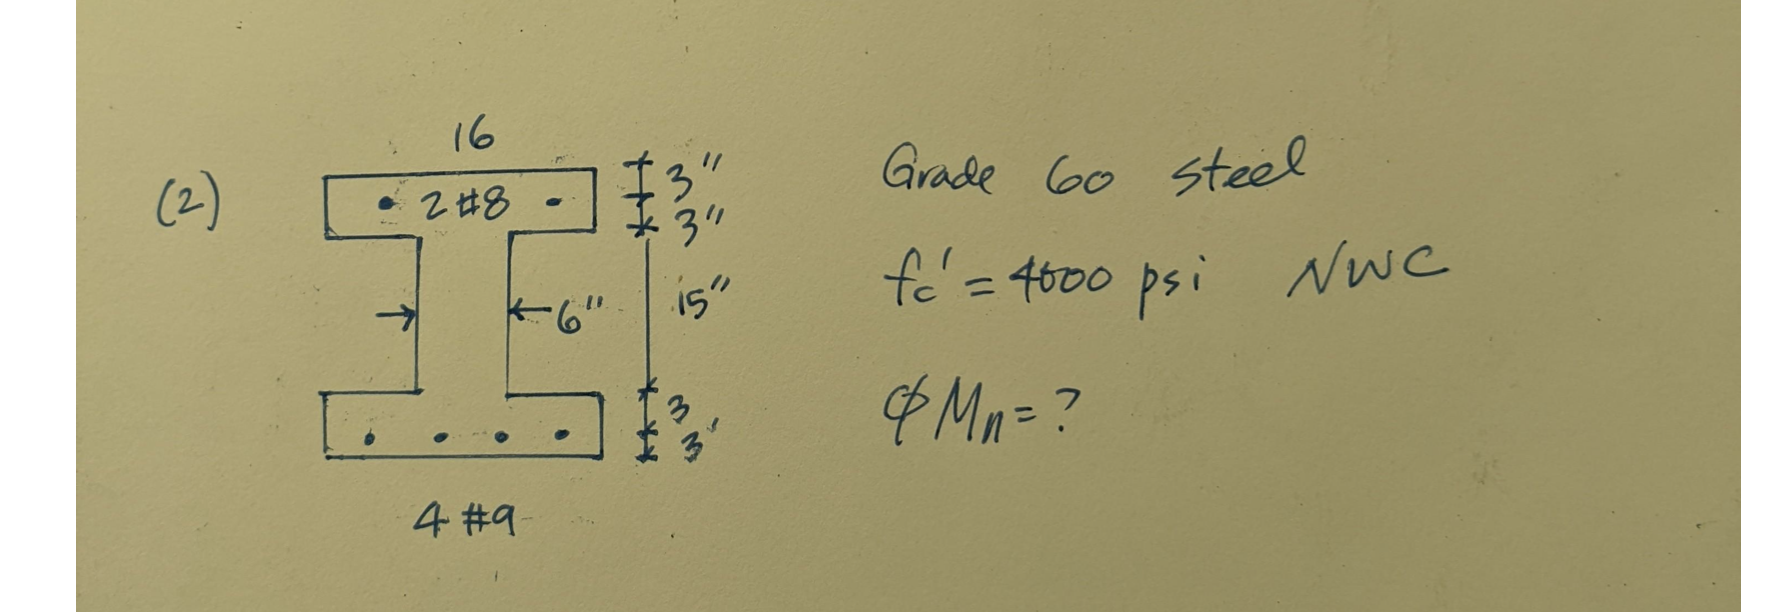 16
(2) 2 #8 3" Grade 60 steel
3"
fc' = 4000 psi NWC
6" 15"
3 φMn = ?
3'
4 #9